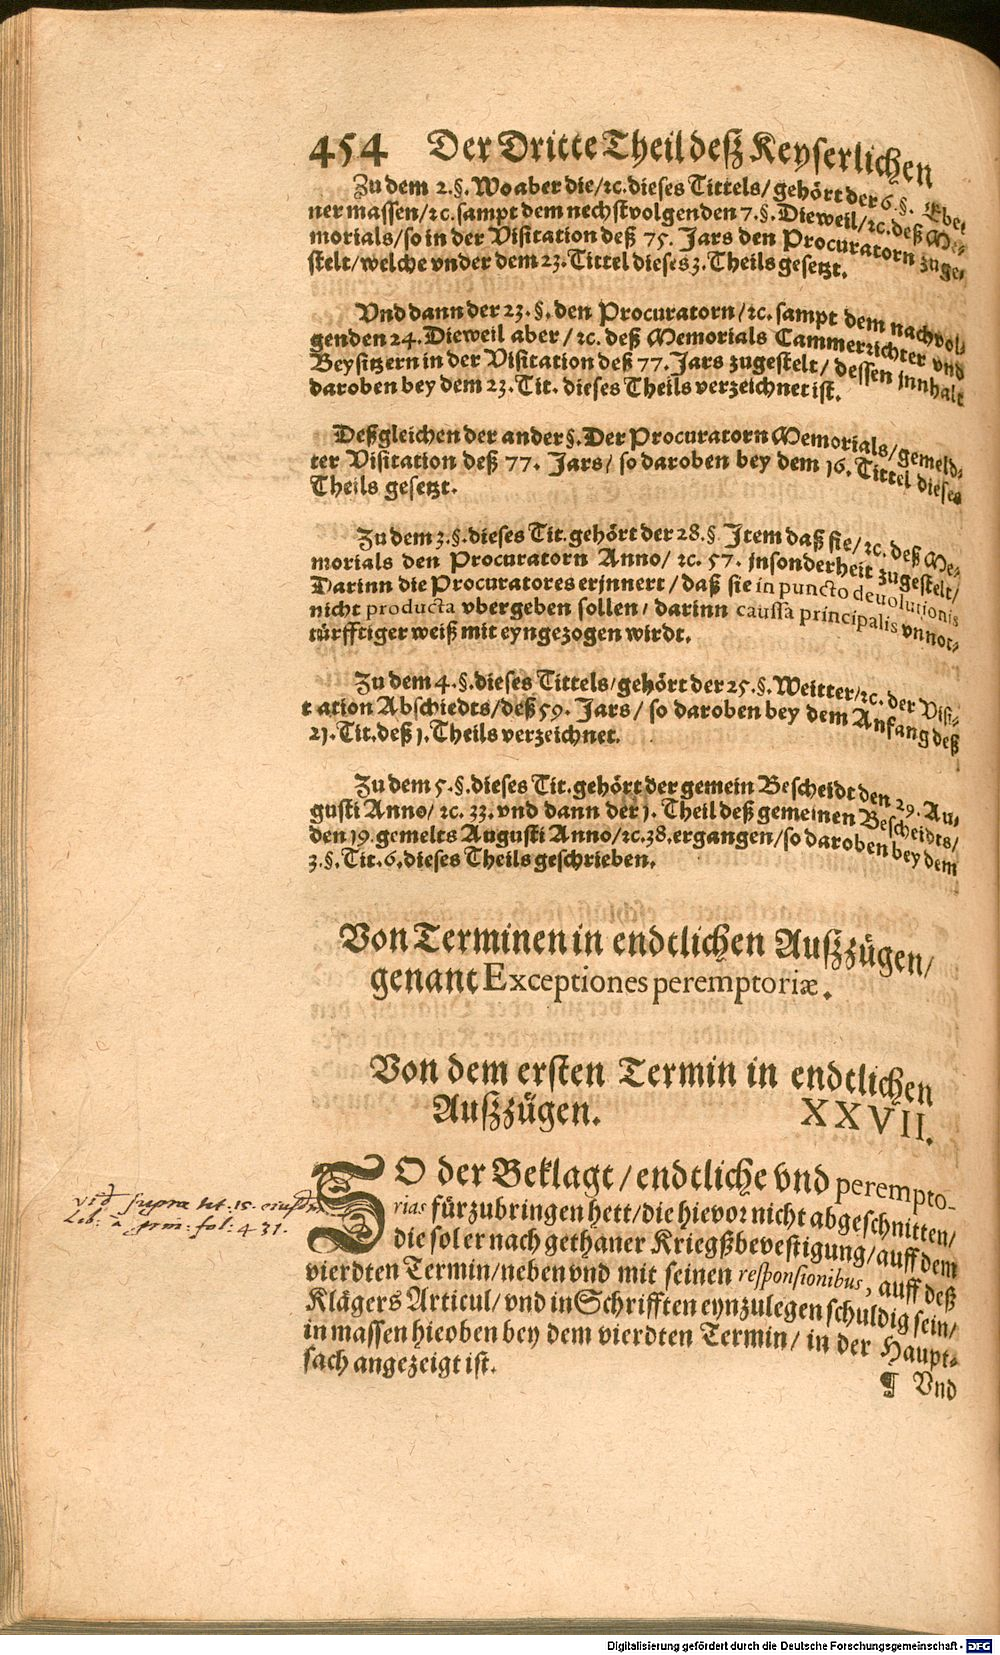 454 Der Dritte Theil deß Keyserlichen
Zu dem 2.§. Wo aber die/ꝛc. dieses Tittels/ gehört der 6.§. Ebe-
ner massen/ꝛc. sampt dem nechstvolgenden 7.§. Dieweil/ꝛc. deß Me-
morials/so in der Visitation deß 75. Jars den Procuratorn zuge-
stelt/welche vnder dem 23. Tittel dieses 3. Theils gesetzt.
Vnd dann der 23.§. den Procuratorn/ꝛc. sampt dem nachvol-
genden 24. Dieweil aber/ꝛc. deß Memorials Cammerrichter vnd
Beysitzern in der Visitation deß 77. Jars zugestelt/ dessen jnnhalt
daroben bey dem 23. Tit. dieses Theils verzeichnet ist.
Deßgleichen der ander §. Der Procuratorn Memorials/gemeld-
ter Visitation deß 77. Jars/ so daroben bey dem 16. Tittel dieses
Theils gesetzt.
Zu dem 3.§. dieses Tit. gehört der 28.§ Item daß sie/ꝛc. deß Me-
morials den Procuratorn Anno/ ꝛc. 57. jnsonderheit zugestelt/
Darinn die Procuratores erjnnert/ daß sie in puncto deuolutionis
nicht producta vbergeben sollen/ darinn caussa principalis vnnot-
türfftiger weiß mit eyngezogen wirdt.
Zu dem 4.§. dieses Tittels/gehört der 25.§. Weitter/ꝛc. der Visi-
tation Abschiedts/deß 59. Jars/ so daroben bey dem Anfang deß
21. Tit. deß 1. Theils verzeichnet.
Zu dem 5.§. dieses Tit. gehört der gemein Bescheidt den 29. Au-
gusti Anno/ ꝛc. 33. vnd dann der 1. Theil deß gemeinen Bescheidts/
den 19. gemelts Augusti Anno/ꝛc. 38. ergangen/so daroben bey dem
3.§. Tit. 6. dieses Theils geschrieben.
Von Terminen in endtlichen Außzügen/
genant Exceptiones peremptoriæ.
Von dem ersten Termin in endtlichen
Außzügen. XXVII.
SO der Beklagt/endtliche vnd perempto-
rias fürzubringen hett/die hievor nicht abgeschnitten/
die sol er nach gethaner Kriegßbevestigung/auff dem
vierdten Termin/neben vnd mit seinen responsionibus, auff deß
Klägers Articul/ vnd in Schrifften eynzulegen schuldig sein/
in massen hieoben bey dem vierdten Termin/ in der Haupt-
sach angezeigt ist.
¶ Vnd
vid supra tit: 15. eiusdm
Lib: ā prin: fol: 431.
Digitalisierung gefördert durch die Deutsche Forschungsgemeinschaft - DFG